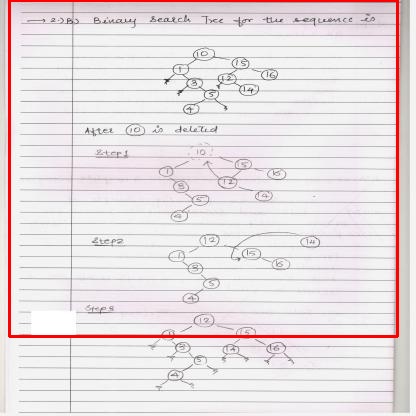 → 2.) B) Binary Search Tree for the sequence is
10
1 15
3 12 16
5 14
4
After 10 is deleted
Step1
10
1 15
3 12 16
5 14
4
Step2
12 14
1 15
3 16
5
4
Step3
12
1 15
3 14 16
5
4